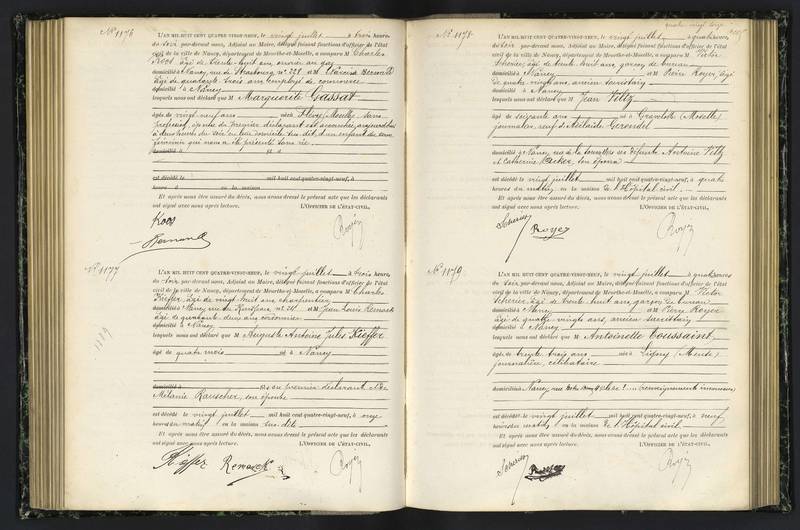 N° 1176
L'AN MIL HUIT CENT QUATRE-VINGT-NEUF, le vingt juillet à trois heures
du soir par-devant nous, Adjoint au Maire, délégué faisant fonctions d'officier de l'état
civil de la ville de Nancy, département de Meurthe-et-Moselle, a comparu M Charles
Koos âgé de trente huit ans, ouvrier au gaz
domicilié à Nancy, rue de Strasbourg n° et M
âgé de quarante trois ans employé de commerce
domicilié à Nancy
lesquels nous ont déclaré que M Marguerite Gassat
âgée de vingt neuf ans née à (Moselle) sans
profession, épouse du premier déclarant est accouchée aujourd'hui
à heures du soir en leur domicile du dit, d'un enfant de sexe
féminin qui nous a été présenté sans vie.
domicilié à
est décédé le mil huit cent quatre-vingt-neuf, à
heure d en la maison
Et après nous être assuré du décès, nous avons dressé le présent acte que les déclarants
ont signé avec nous après lecture. L'OFFICIER DE L'ÉTAT-CIVIL,
Koos
N° 1177
L'AN MIL HUIT CENT QUATRE-VINGT-NEUF, le vingt juillet à trois heures
du soir par-devant nous, Adjoint au Maire, délégué faisant fonctions d'officier de l'état
civil de la ville de Nancy, département de Meurthe-et-Moselle, a comparu M Charles
Kieffer, âgé de vingt huit ans charpentier
domicilié à Nancy rue n° et M Jean Louis
âgé de quarante deux ans cordonnier
domicilié à Nancy
lesquels nous ont déclaré que M Auguste Antoine Jules Kieffer
âgé de quatre mois né à Nancy
domicilié à fils du premier déclarant et de
Mélanie Rauscher, son épouse
est décédé le vingt juillet mil huit cent quatre-vingt-neuf, à onze
heures du matin en la maison sus-dite
Et après nous être assuré du décès, nous avons dressé le présent acte que les déclarants
ont signé avec nous après lecture. L'OFFICIER DE L'ÉTAT-CIVIL,
Kieffer
1889
N° 1178
L'AN MIL HUIT CENT QUATRE-VINGT-NEUF, le vingt juillet à quatre heures
du soir par-devant nous, Adjoint au Maire, délégué faisant fonctions d'officier de l'état
civil de la ville de Nancy, département de Meurthe-et-Moselle, a comparu M Victor
Scherier, âgé de trente huit ans, garçon de bureau
domicilié à Nancy et M Pierre Royer, âgé
de quatre vingts ans, ancien secrétaire
domicilié à Nancy
lesquels nous ont déclaré que M Jean Viltz
âgé de soixante ans né à Gravelotte (Moselle)
journalier, veuf d'Adélaïde
domicilié à Nancy, rue de la fils de défunts Antoine Viltz
et Catherine son épouse
est décédé le vingt juillet mil huit cent quatre-vingt-neuf, à quatre
heures du matin en la maison de l'Hôpital civil.
Et après nous être assuré du décès, nous avons dressé le présent acte que les déclarants
ont signé avec nous après lecture. L'OFFICIER DE L'ÉTAT-CIVIL,
Scherier
Royer
N° 1179
L'AN MIL HUIT CENT QUATRE-VINGT-NEUF, le vingt juillet à quatre heures
du soir par-devant nous, Adjoint au Maire, délégué faisant fonctions d'officier de l'état
civil de la ville de Nancy, département de Meurthe-et-Moselle, a comparu M Victor
Scherier, âgé de trente huit ans, garçon de bureau
domicilié à Nancy et M Pierre Royer
âgé de quatre vingts ans, ancien secrétaire
domicilié à Nancy
lesquels nous ont déclaré que M Antoinette Toussaint
âgée de trente trois ans née à Ligny (Meuse)
journalière, célibataire
domiciliée à Nancy, rue (renseignements inconnus)
est décédée le vingt juillet mil huit cent quatre-vingt-neuf, à neuf
heures du matin en la maison de l'Hôpital civil.
Et après nous être assuré du décès, nous avons dressé le présent acte que les déclarants
ont signé avec nous après lecture. L'OFFICIER DE L'ÉTAT-CIVIL,
Scherier
Royer